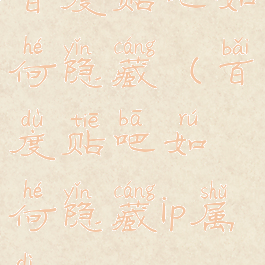 百度贴吧如
hé yǐn cáng bǎi
何隐藏(百
dù tiē bā rú
度贴吧如
hé yǐn cáng shǔ
何隐藏ip属
dì